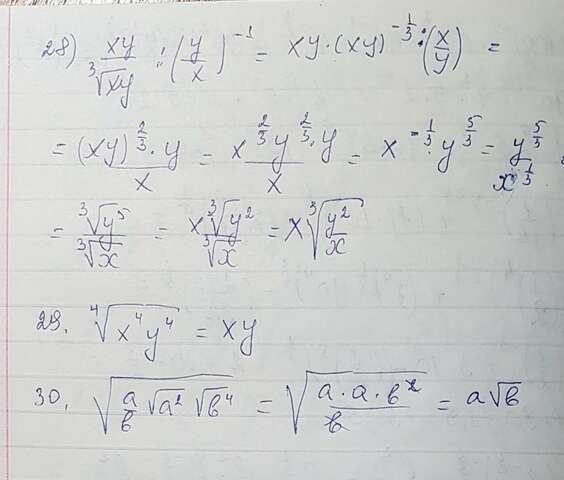 28) xy/∛xy : (y/x)^-1 = xy·(xy)^-1/3 : (x/y) =
= (xy)^2/3·y/x = x^2/3 y^2/3·y/x = x^-1/3·y^5/3 = y^5/3/x^1/3
= ∛y^5/∛x = x∛y^2/∛x = x∛(y^2/x)
29. ∜(x^4y^4) = xy
30. √(a/b √a^2 √b^4) = √(a·a·b^2/b) = a√b